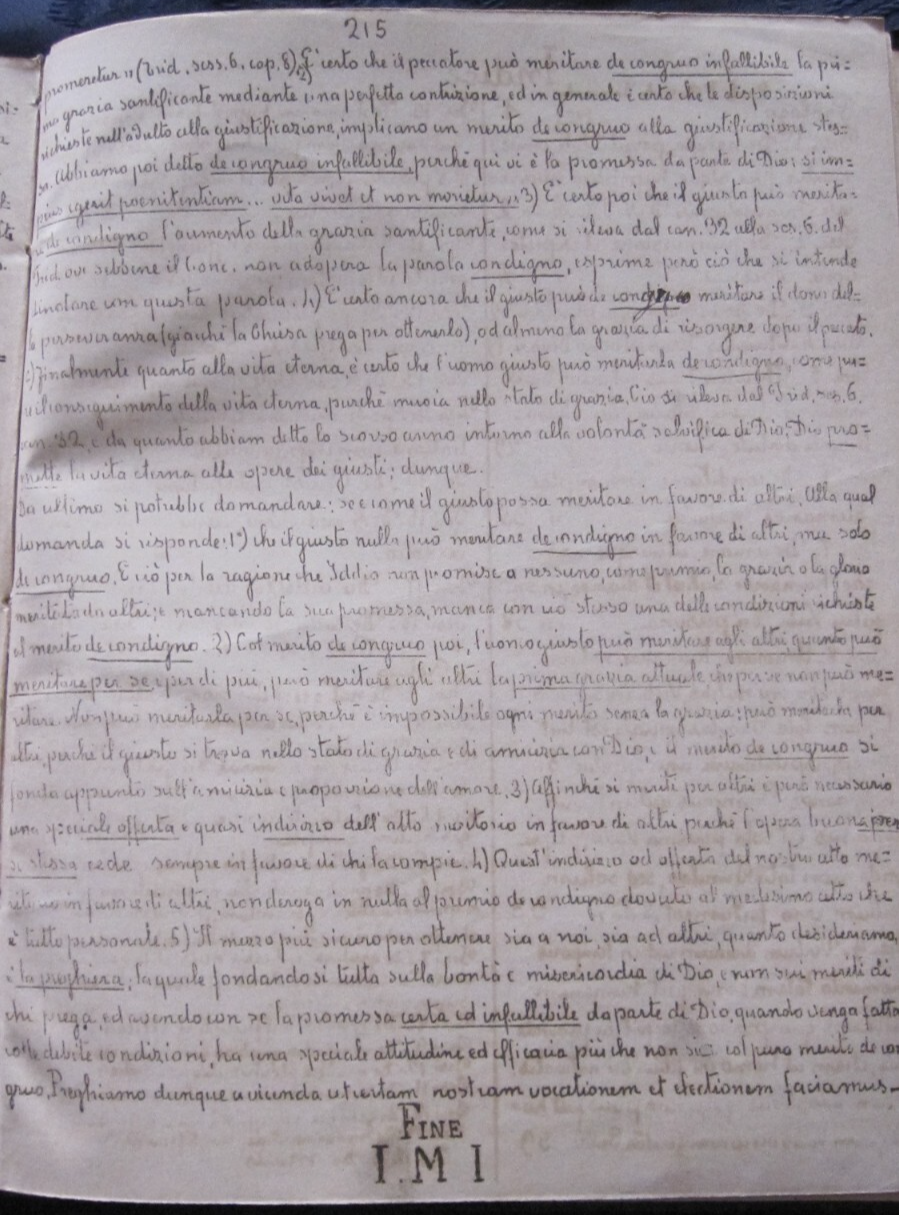 215
promeretur" (Trid. sess. 6, cap. 8). 2) E' certo che il peccatore può meritare de congruo infallibile la pri=
ma grazia santificante mediante una perfetta contrizione, ed in generale è certo che le disposizioni
richieste nell'adulto alla giustificazione, implicano un merito de congruo alla giustificazione stes=
sa. Abbiamo poi detto de congruo infallibile, perchè qui vi è la promessa da parte di Dio: si im=
pius egerit poenitentiam... vita vivet et non morietur". 3) E' certo poi che il giusto può merita=
re de condigno l'aumento della grazia santificante, come si rileva dal can. 32 alla ses. 6. del
Trid. ove sebbene il Conc. non adopera la parola condigno, esprime però ciò che si intende
dinotare con questa parola. 4) E' certo ancora che il giusto può de congruo meritare il dono del=
la perseveranza (giacchè la Chiesa prega per ottenerlo), od almeno la grazia di risorgere dopo il peccato.
5) Finalmente quanto alla vita eterna, è certo che l'uomo giusto può meritarla de condigno, come pu=
re il conseguimento della vita eterna, purchè muoia nello stato di grazia. Ciò si rileva dal Trid. ses. 6.
can. 32, e da quanto abbiam detto lo scorso anno intorno alla volontà salvifica di Dio: Dio pro=
mette la vita eterna alle opere dei giusti; dunque.
Da ultimo si potrebbe domandare: se e come il giusto possa meritare in favore di altri. Alla qual
domanda si risponde: 1°) che il giusto nulla può meritare de condigno in favore di altri, ma solo
de congruo. E ciò per la ragione che Iddio non promise a nessuno, come premio, la grazia o la gloria
meritata da altri; e mancando la sua promessa, manca con ciò stesso una delle condizioni richieste
al merito de condigno. 2) Col merito de congruo poi, l'uomo giusto può meritare agli altri quanto può
meritare per se e per di più, può meritare agli altri la prima grazia attuale che per se non può me=
ritare. Non può meritarla per se, perchè è impossibile ogni merito senza la grazia: può meritarla per
altri perchè il giusto si trova nello stato di grazia e di amicizia con Dio, e il merito de congruo si
fonda appunto sull'amicizia e proporzione dell'amore. 3) Affinchè si meriti per altri è però necessario
una speciale offerta e quasi indirizzo dell'atto meritorio in favore di altri perchè l'opera buona per
se stessa cede sempre in favore di chi la compie. 4) Quest'indirizzo od offerta del nostro atto me=
ritorio in favore di altri, non deroga in nulla al premio de condigno dovuto al medesimo atto che
è tutto personale. 5) Il mezzo più sicuro per ottenere sia a noi, sia ad altri, quanto desideriamo,
è la preghiera, la quale fondandosi tutta sulla bontà e misericordia di Dio e non sui meriti di
chi prega, ed avendo con se la promessa certa ed infallibile da parte di Dio, quando venga fatta
colle debite condizioni, ha una speciale attitudine ed efficacia più che non sia col puro merito de con
gruo. Preghiamo dunque a vicenda ut certam nostram vocationem et electionem faciamus-
FINE
I. M I